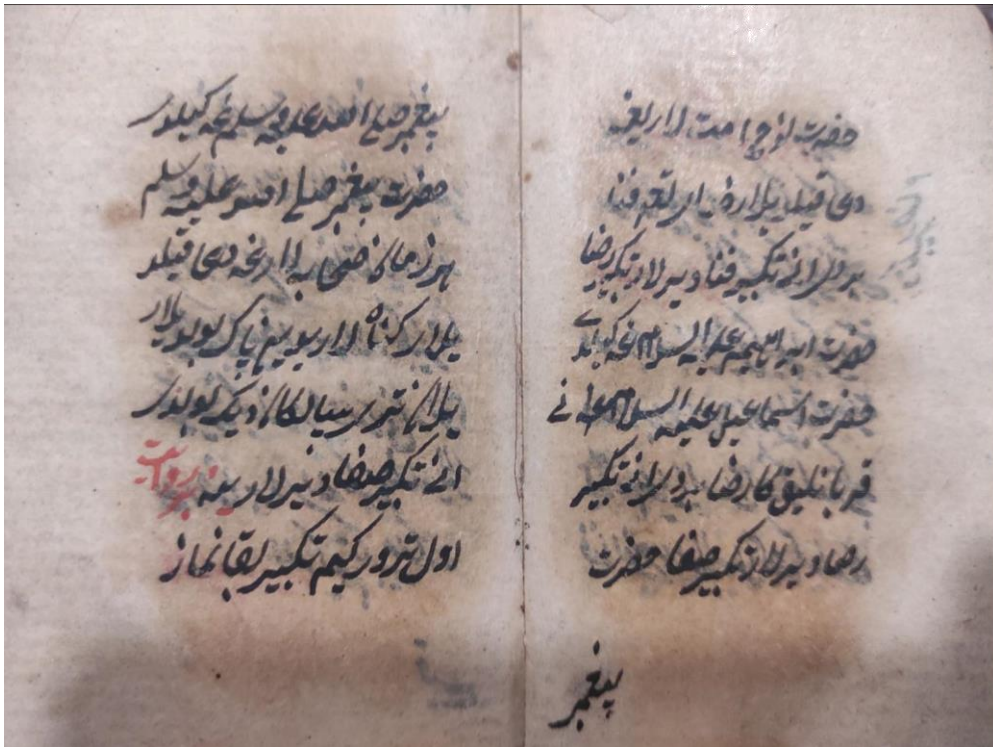 حضرت نوح امت لاریغه
دعی قیلدیلار فنا
انی تکبیر فنا دیرلار تکبیر رضا
حضرت ابراهیم علیه السلام غه کیلدی
حضرت اسماعیل علیه السلام نی
قربانلیق کا رضا بردیلار انی تکبیر
رضا دیرلار تکبیر صفا حضرت
پیغمبر
پیغمبر صلی الله علیه وسلم غه کیلدور
حضرت پیغمبر صلی الله علیه وسلم
هر زمان لاریغه دعی قیلد
یلار کناه لاریدین پاک بولدیلار
یلان دیک بولدور
انی تکبیر صفا دیرلار ینه بر روایت
اول تورور کیم تکبیر بقا نماز